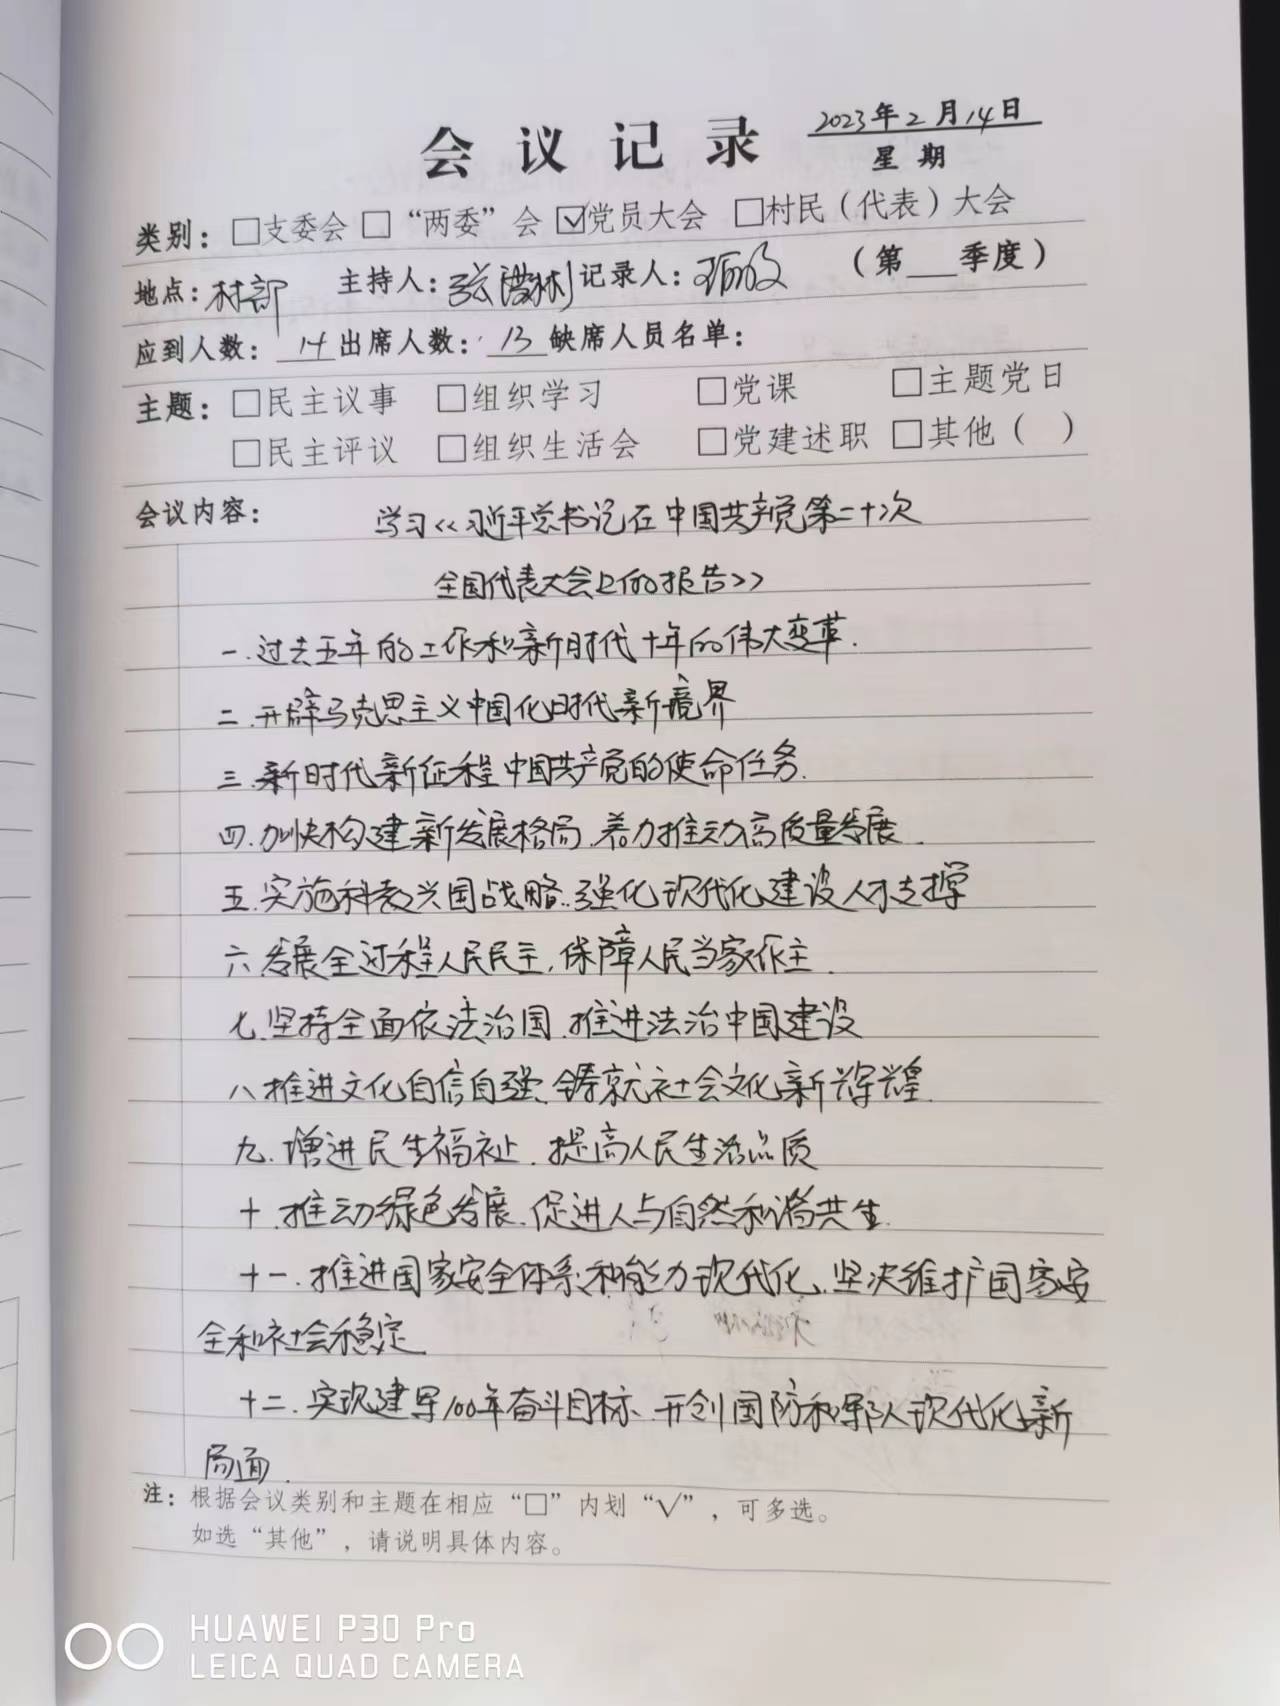 会议记录
2023年2月14日
星期
类别：□支委会 □“两委”会 ☑党员大会 □村民（代表）大会
地点：村部 主持人：张 记录人： （第___季度）
应到人数：14 出席人数：13 缺席人员名单：
主题：□民主议事 □组织学习 □党课 □主题党日
□民主评议 □组织生活会 □党建述职 □其他（ ）
会议内容： 学习《习近平总书记在中国共产党第二十次
全国代表大会上的报告》
一.过去五年的工作和新时代十年的伟大变革.
二.开辟马克思主义中国化时代新境界
三.新时代新征程中国共产党的使命任务.
四.加快构建新发展格局.着力推动高质量发展.
五.实施科教兴国战略.强化现代化建设人才支撑
六.发展全过程人民民主,保障人民当家作主.
七.坚持全面依法治国.推进法治中国建设
八推进文化自信自强、铸就社会文化新辉煌.
九.增进民生福祉.提高人民生活品质
十.推动绿色发展.促进人与自然和谐共生.
十一.推进国家安全体系和能力现代化、坚决维护国家安
全和社会稳定
十二.实现建军100年奋斗目标.开创国防和军队现代化新
局面.
注：根据会议类别和主题在相应“□”内划“√”，可多选。
如选“其他”，请说明具体内容。
HUAWEI P30 Pro
LEICA QUAD CAMERA